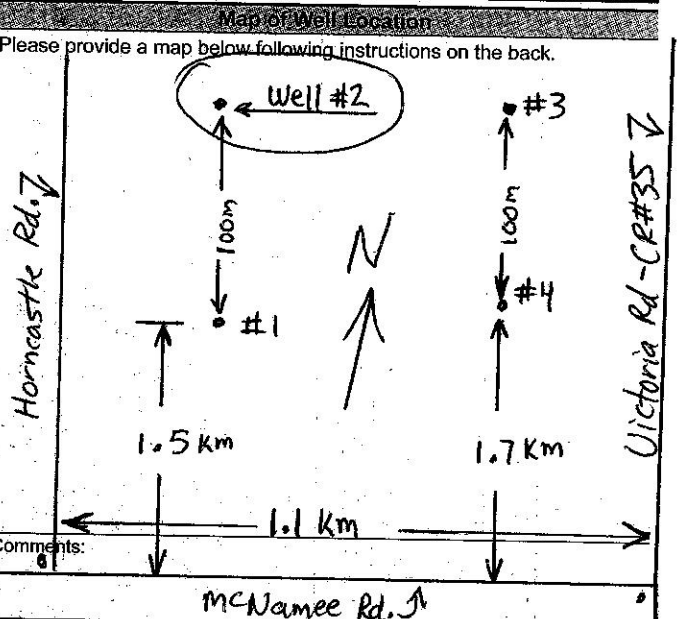 Map of Well Location
Please provide a map below following instructions on the back.
Well #2
#3
Horncastle Rd.
100m
N
100m
Victoria Rd-CR#35
#1
#4
1.5 Km
1.7 Km
1.1 Km
Comments:
McNamee Rd.